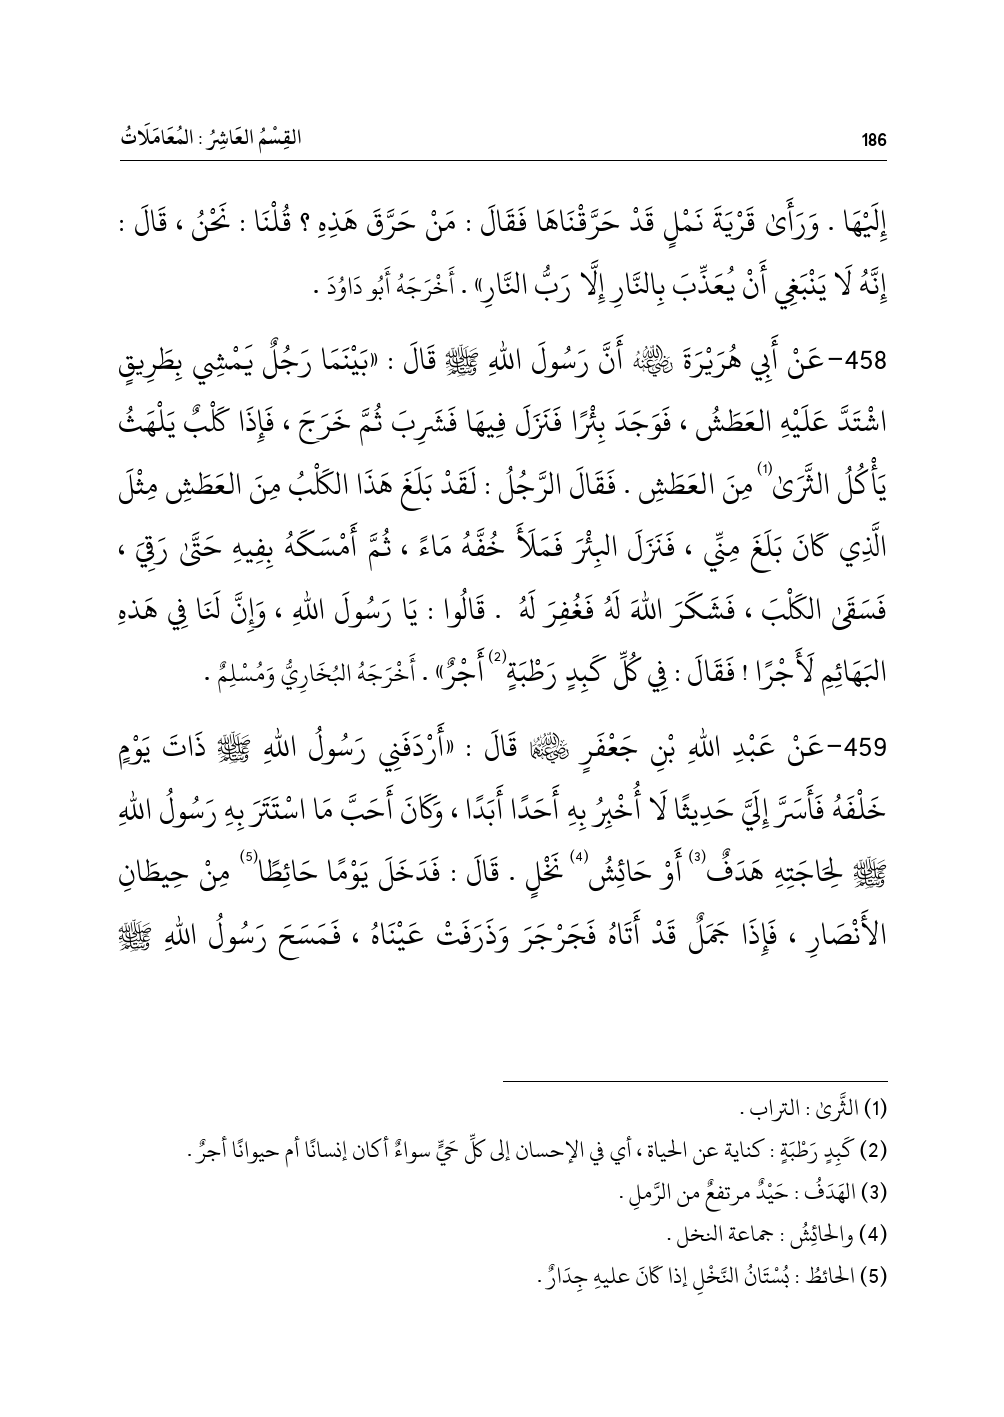 186 القِسْمُ العَاشِرُ : المُعَامَلَاتُ
إِلَيْهَا . وَرَأَىٰ قَرْيَةَ نَمْلٍ قَدْ حَرَّقْنَاهَا فَقَالَ : مَنْ حَرَّقَ هَذِهِ ؟ قُلْنَا : نَحْنُ ، قَالَ :
إِنَّهُ لَا يَنْبَغِي أَنْ يُعَذِّبَ بِالنَّارِ إِلَّا رَبُّ النَّارِ» . أَخْرَجَهُ أَبُو دَاوُدَ .
458–عَنْ أَبِي هُرَيْرَةَ رضي الله عنه أَنَّ رَسُولَ اللهِ ﷺ قَالَ : «بَيْنَمَا رَجُلٌ يَمْشِي بِطَرِيقٍ
اشْتَدَّ عَلَيْهِ العَطَشُ ، فَوَجَدَ بِئْرًا فَنَزَلَ فِيهَا فَشَرِبَ ثُمَّ خَرَجَ ، فَإِذَا كَلْبٌ يَلْهَثُ
يَأْكُلُ الثَّرَىٰ(1) مِنَ العَطَشِ . فَقَالَ الرَّجُلُ : لَقَدْ بَلَغَ هَذَا الكَلْبُ مِنَ العَطَشِ مِثْلَ
الَّذِي كَانَ بَلَغَ مِنِّي ، فَنَزَلَ البِئْرَ فَمَلَأَ خُفَّهُ مَاءً ، ثُمَّ أَمْسَكَهُ بِفِيهِ حَتَّىٰ رَقِيَ ،
فَسَقَىٰ الكَلْبَ ، فَشَكَرَ اللهَ لَهُ فَغُفِرَ لَهُ . قَالُوا : يَا رَسُولَ اللهِ ، وَإِنَّ لَنَا فِي هَذهِ
البَهَائِمِ لَأَجْرًا ! فَقَالَ : فِي كُلِّ كَبِدٍ رَطْبَةٍ(2) أَجْرٌ» . أَخْرَجَهُ البُخَارِيُّ وَمُسْلِمٌ .
459–عَنْ عَبْدِ اللهِ بْنِ جَعْفَرٍ رضي الله عنهما قَالَ : «أَرْدَفَنِي رَسُولُ اللهِ ﷺ ذَاتَ يَوْمٍ
خَلْفَهُ فَأَسَرَّ إِلَيَّ حَدِيثًا لَا أُخْبِرُ بِهِ أَحَدًا أَبَدًا ، وَكَانَ أَحَبَّ مَا اسْتَتَرَ بِهِ رَسُولُ اللهِ
ﷺ لِحَاجَتِهِ هَدَفٌ(3) أَوْ حَائِشُ(4) نَخْلٍ . قَالَ : فَدَخَلَ يَوْمًا حَائِطًا(5) مِنْ حِيطَانِ
الأَنْصَارِ ، فَإِذَا جَمَلٌ قَدْ أَتَاهُ فَجَرْجَرَ وَذَرَفَتْ عَيْنَاهُ ، فَمَسَحَ رَسُولُ اللهِ ﷺ
(1) الثَّرىٰ : التراب .
(2) كَبِدٍ رَطْبَةٍ : كناية عن الحياة ، أي في الإحسان إلى كلِّ حَيٍّ سواءٌ أكان إنسانًا أم حيوانًا أجرٌ .
(3) الهَدَفُ : حَيْدٌ مرتفعٌ من الرَّملِ .
(4) والحائِشُ : جماعة النخل .
(5) الحائطُ : بُسْتَانُ النَّخْلِ إذا كَانَ عليهِ جِدَارٌ .